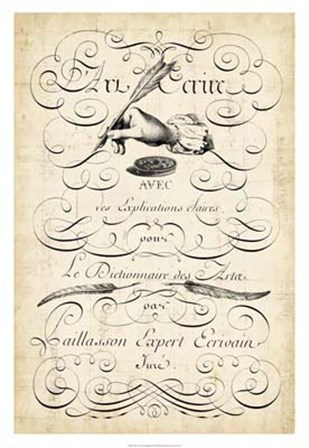 Art Ecrire
AVEC
des Explications claires
pour
Le Dictionnaire des Arts
par
Paillasson Expert Ecrivain
Juré.